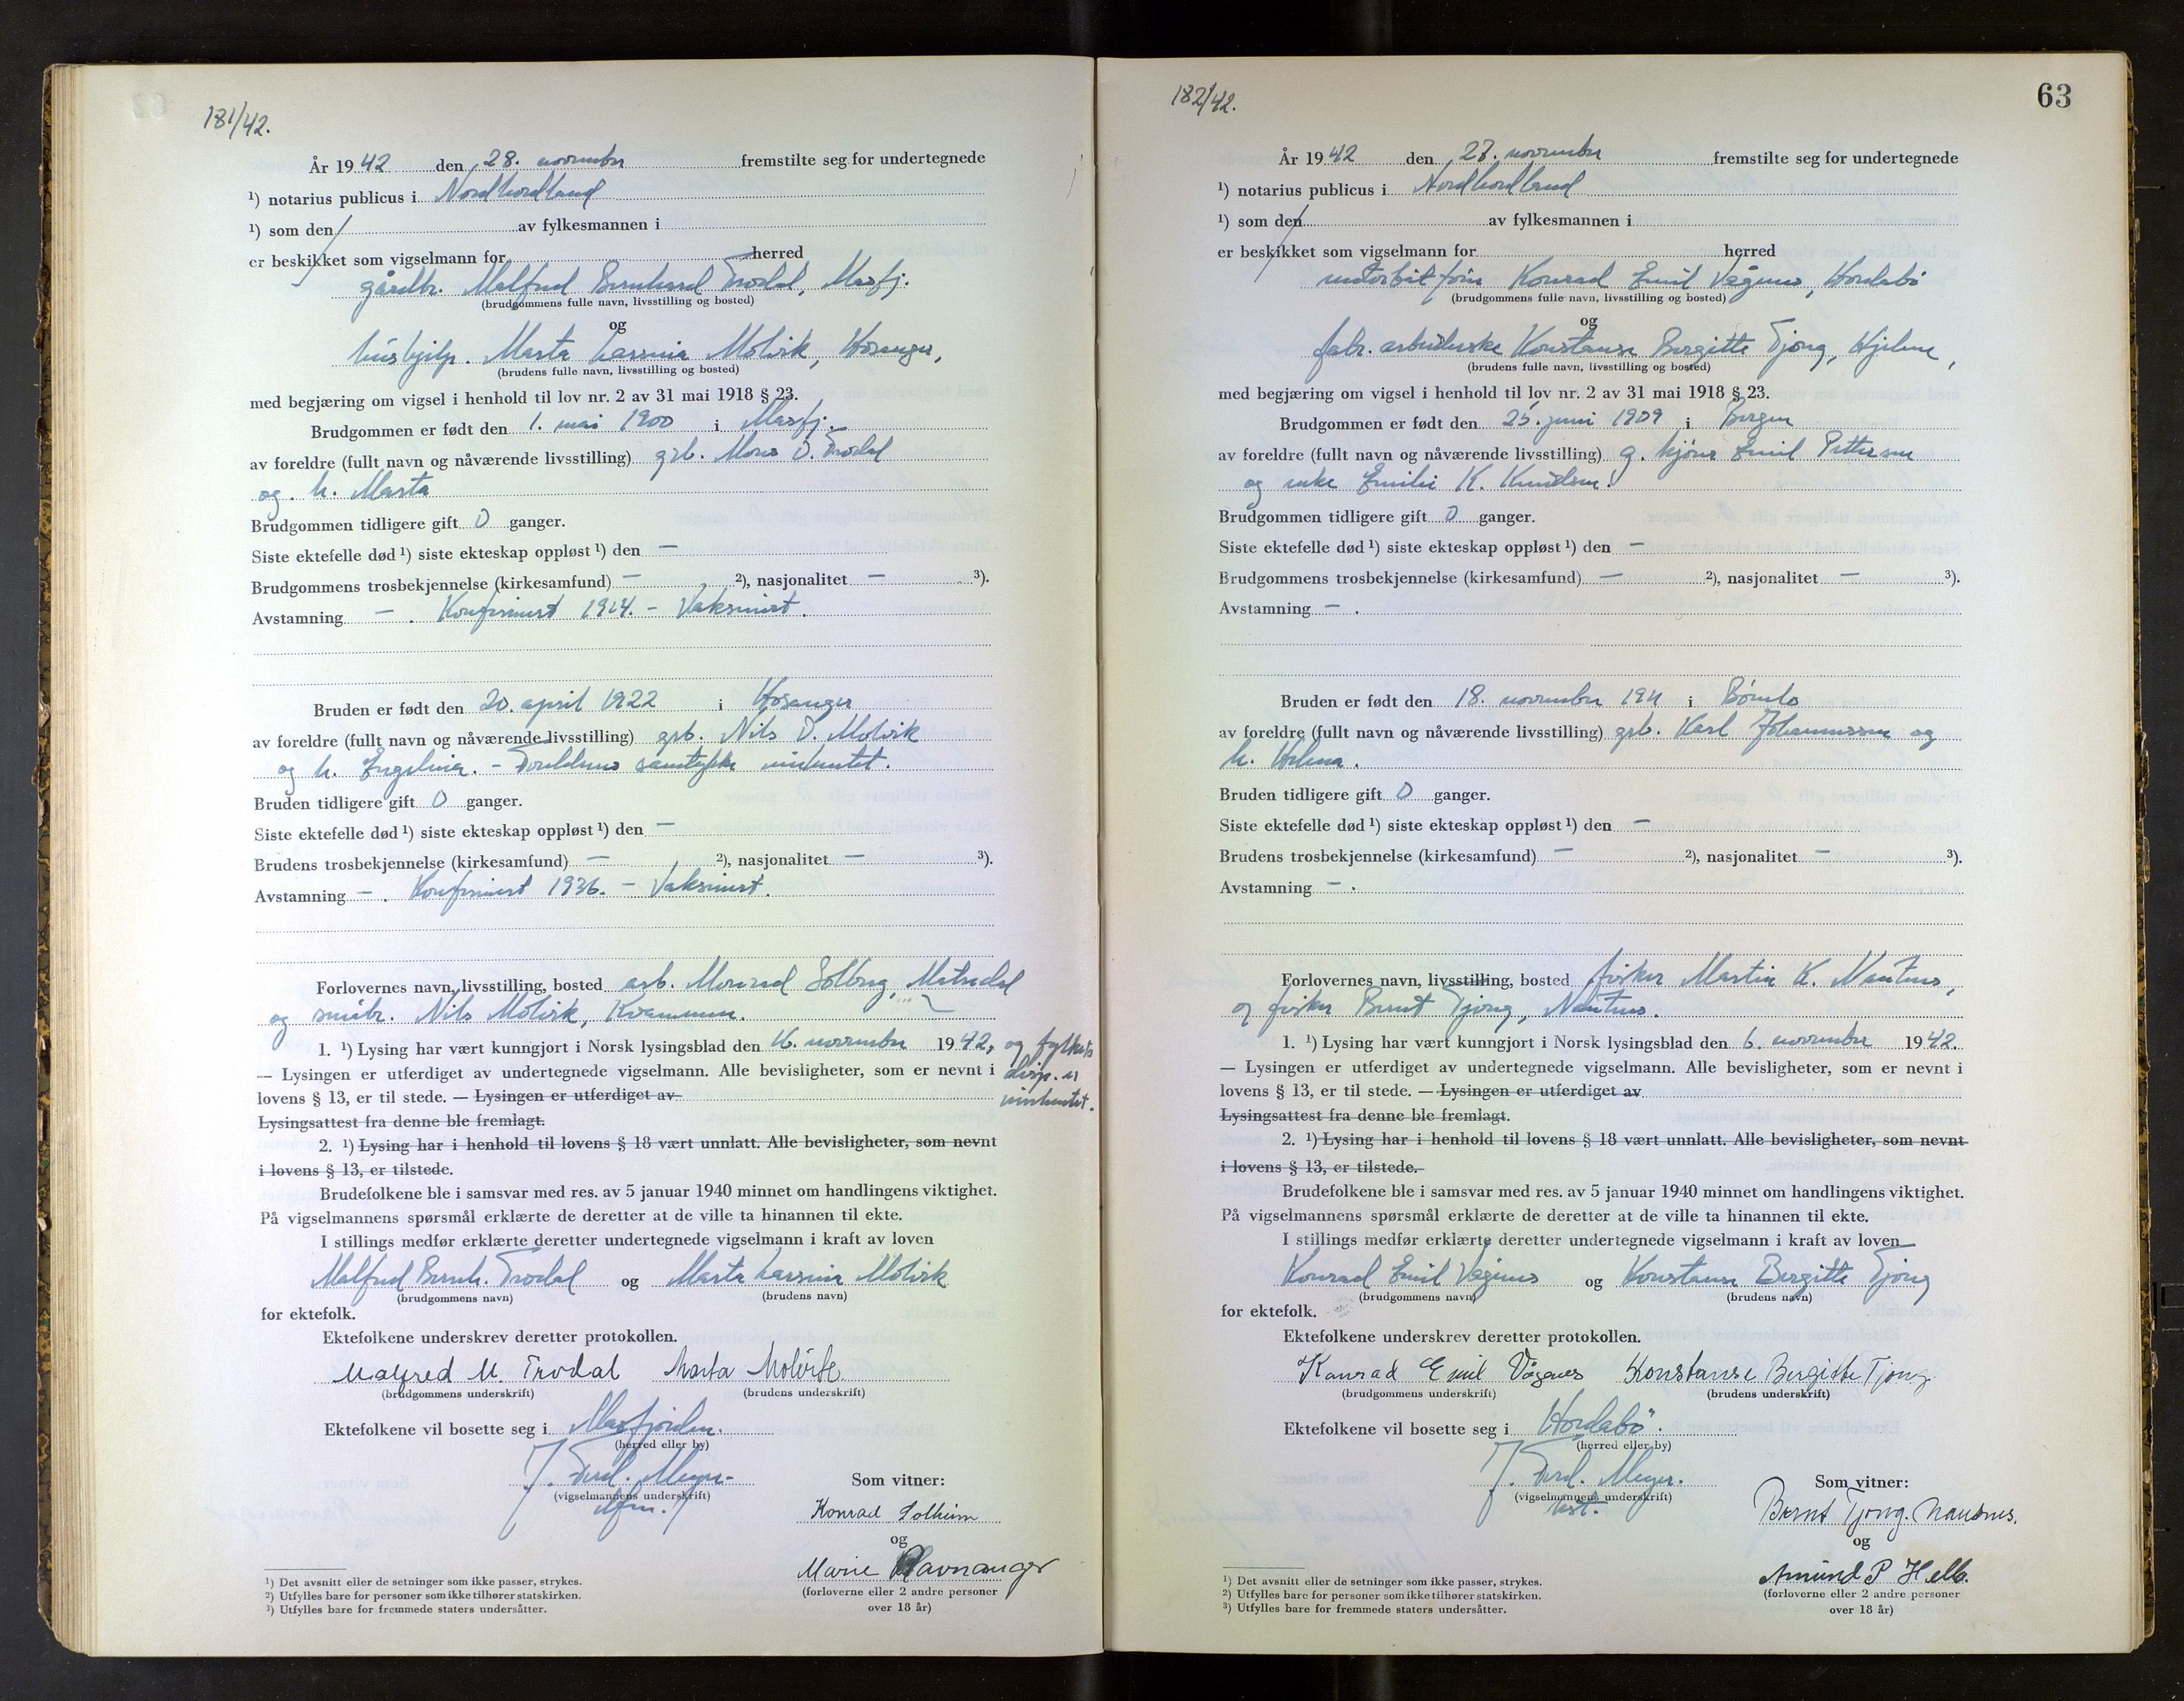 181/42.
År 1942 den 28. november fremstilte seg for undertegnede
¹) notarius publicus i Nordhordland
¹) som den av fylkesmannen i
er beskikket som vigselmann for herred
gårdbr. Malfred Bernhard Trodal, Masfj.
(brudgommens fulle navn, livsstilling og bosted)
og
hushjelp. Marta Larsina Molvik, Hosanger,
(brudens fulle navn, livsstilling og bosted)
med begjæring om vigsel i henhold til lov nr. 2 av 31 mai 1918 § 23.
Brudgommen er født den 1. mai 1900 i Masfj.
av foreldre (fullt navn og nåværende livsstilling) grb. Mons O. Trodal
og h. Marta
Brudgommen tidligere gift 0 ganger.
Siste ektefelle død ¹) siste ekteskap oppløst ¹) den —
Brudgommens trosbekjennelse (kirkesamfund) — ²), nasjonalitet — ³).
Avstamning — . Konfirmert 1914. - Vaksinert.
Bruden er født den 20. april 1922 i Hosanger
av foreldre (fullt navn og nåværende livsstilling) grb. Nils O. Molvik
og h. Engelina. - Foreldrenes samtykke innhentet.
Bruden tidligere gift 0 ganger.
Siste ektefelle død ¹) siste ekteskap oppløst ¹) den —
Brudens trosbekjennelse (kirkesamfund) — ²), nasjonalitet — ³).
Avstamning — . Konfirmert 1936. - Vaksinert.
Forlovernes navn, livsstilling, bosted arb. Monrad Solberg, Matredal
og småbr. Nils Molvik, Kvammen.
1. ¹) Lysing har vært kunngjort i Norsk lysingsblad den 16. november 1942, og fylkets
— Lysingen er utferdiget av undertegnede vigselmann. Alle bevisligheter, som er nevnt i disp. er
lovens § 13, er til stede. — Lysingen er utferdiget av innhentet.
Lysingsattest fra denne ble fremlagt.
2. ¹) Lysing har i henhold til lovens § 18 vært unnlatt. Alle bevisligheter, som nevnt
i lovens § 13, er tilstede.
Brudefolkene ble i samsvar med res. av 5 januar 1940 minnet om handlingens viktighet.
På vigselmannens spørsmål erklærte de deretter at de ville ta hinannen til ekte.
I stillings medfør erklærte deretter undertegnede vigselmann i kraft av loven
Malfred Bernh. Trodal og Marta Larsina Molvik
(brudgommens navn) (brudens navn)
for ektefolk.
Ektefolkene underskrev deretter protokollen.
Malfred M. Trodal Marta Molvik
(brudgommens underskrift) (brudens underskrift)
Ektefolkene vil bosette seg i Masfjorden.
(herred eller by)
J. Ferd. Meyer Som vitner:
(vigselmannens underskrift)
Konrad Solheim
og
Marie Ravnanger
(forloverne eller 2 andre personer
over 18 år)
¹) Det avsnitt eller de setninger som ikke passer, strykes.
²) Utfylles bare for personer som ikke tilhører statskirken.
³) Utfylles bare for fremmede staters undersåtter.
182/42.
63
År 1942 den 27. november fremstilte seg for undertegnede
¹) notarius publicus i Nordhordland
¹) som den av fylkesmannen i
er beskikket som vigselmann for herred
motorbåtfører Konrad Emil Vågenes, Hordabø
(brudgommens fulle navn, livsstilling og bosted)
og
fabr. arbeiderske Konstanse Bergitte Tjong, Hjelme,
(brudens fulle navn, livsstilling og bosted)
med begjæring om vigsel i henhold til lov nr. 2 av 31 mai 1918 § 23.
Brudgommen er født den 25. juni 1909 i Bergen
av foreldre (fullt navn og nåværende livsstilling) g. Emil Pettersen
og enke Emilie K. Knudsen.
Brudgommen tidligere gift 0 ganger.
Siste ektefelle død ¹) siste ekteskap oppløst ¹) den —
Brudgommens trosbekjennelse (kirkesamfund) — ²), nasjonalitet — ³).
Avstamning — .
Bruden er født den 18. november 1911 i Bømlo
av foreldre (fullt navn og nåværende livsstilling) grb. Karl Johannessen og
h. Helena.
Bruden tidligere gift 0 ganger.
Siste ektefelle død ¹) siste ekteskap oppløst ¹) den —
Brudens trosbekjennelse (kirkesamfund) — ²), nasjonalitet — ³).
Avstamning — .
Forlovernes navn, livsstilling, bosted fisker Martin K. Nautnes,
og fisker Bernt Tjong, Nautnes.
1. ¹) Lysing har vært kunngjort i Norsk lysingsblad den 6. november 1942.
— Lysingen er utferdiget av undertegnede vigselmann. Alle bevisligheter, som er nevnt i
lovens § 13, er til stede. — Lysingen er utferdiget av
Lysingsattest fra denne ble fremlagt.
2. ¹) Lysing har i henhold til lovens § 18 vært unnlatt. Alle bevisligheter, som nevnt
i lovens § 13, er tilstede.
Brudefolkene ble i samsvar med res. av 5 januar 1940 minnet om handlingens viktighet.
På vigselmannens spørsmål erklærte de deretter at de ville ta hinannen til ekte.
I stillings medfør erklærte deretter undertegnede vigselmann i kraft av loven
Konrad Emil Vågenes og Konstanse Bergitte Tjong
(brudgommens navn) (brudens navn)
for ektefolk.
Ektefolkene underskrev deretter protokollen.
Konrad Emil Vågenes Konstanse Bergitte Tjong
(brudgommens underskrift) (brudens underskrift)
Ektefolkene vil bosette seg i Hordabö.
(herred eller by)
J. Ferd. Meyer. Som vitner:
(vigselmannens underskrift)
Bernt Tjong. Nautnes.
og
Amund P Helle.
(forloverne eller 2 andre personer
over 18 år)
¹) Det avsnitt eller de setninger som ikke passer, strykes.
²) Utfylles bare for personer som ikke tilhører statskirken.
³) Utfylles bare for fremmede staters undersåtter.